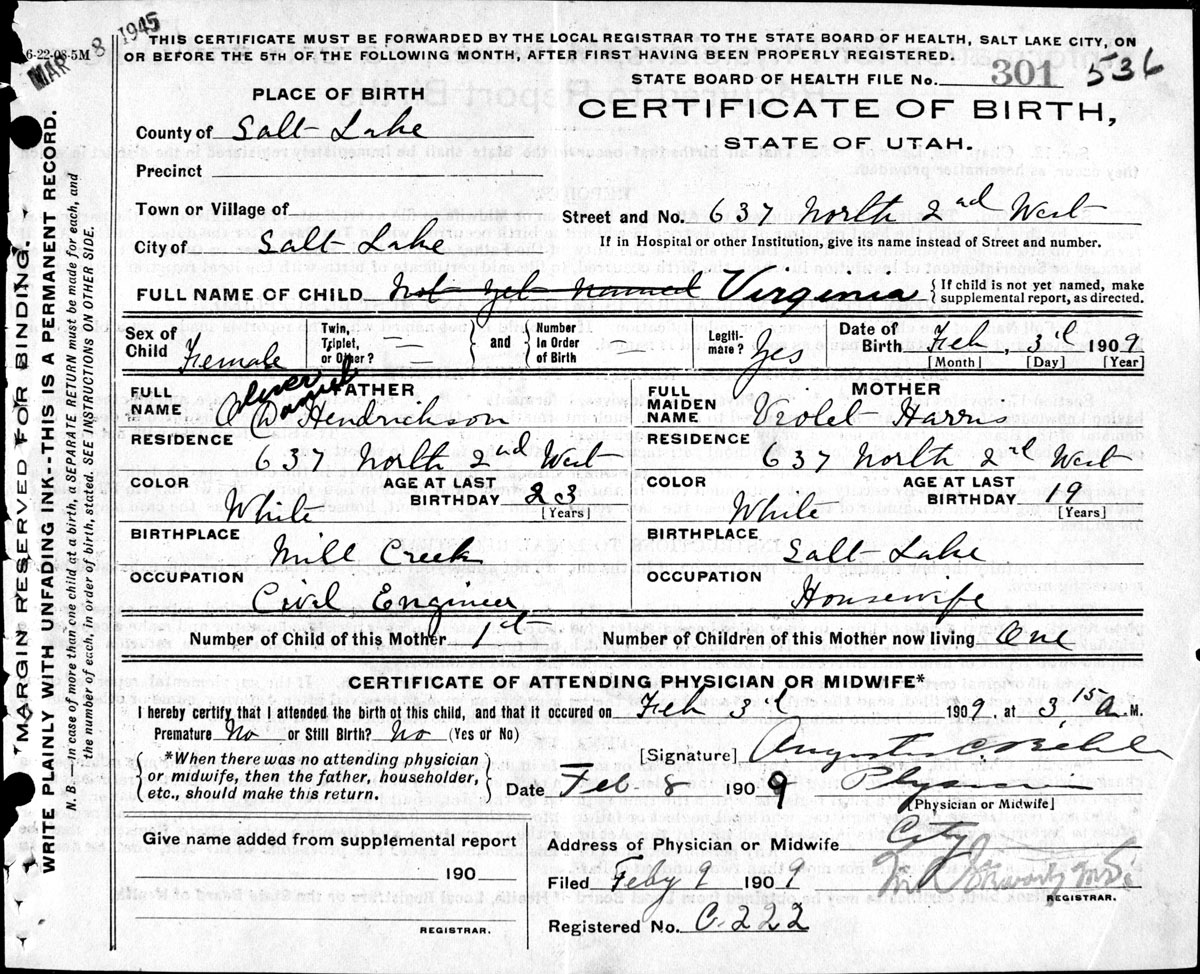 MAR 8 1945
6-22-08-5M
THIS CERTIFICATE MUST BE FORWARDED BY THE LOCAL REGISTRAR TO THE STATE BOARD OF HEALTH, SALT LAKE CITY, ON
OR BEFORE THE 5TH OF THE FOLLOWING MONTH, AFTER FIRST HAVING BEEN PROPERLY REGISTERED.
STATE BOARD OF HEALTH FILE No. 301 536
PLACE OF BIRTH
CERTIFICATE OF BIRTH,
STATE OF UTAH.
County of Salt Lake
Precinct
Town or Village of
Street and No. 637 North 2nd West
City of Salt Lake
If in Hospital or other Institution, give its name instead of Street and number.
FULL NAME OF CHILD Not yet named Virginia { If child is not yet named, make
supplemental report, as directed.
Sex of Child Female
Twin, Triplet, or Other? — { and } Number In Order of Birth —
Legitimate? Yes
Date of Birth Feb, 3d 1909
[Month] [Day] [Year]
FULL NAME FATHER
Oliver Daniel
O D Hendrickson
FULL MAIDEN NAME MOTHER
Violet Harris
RESIDENCE 637 North 2nd West
RESIDENCE 637 North 2nd West
COLOR White AGE AT LAST BIRTHDAY 23 [Years]
COLOR White AGE AT LAST BIRTHDAY 19 [Years]
BIRTHPLACE Mill Creek
BIRTHPLACE Salt Lake
OCCUPATION Civil Engineer
OCCUPATION Housewife
Number of Child of this Mother 1st Number of Children of this Mother now living One
CERTIFICATE OF ATTENDING PHYSICIAN OR MIDWIFE*
I hereby certify that I attended the birth of this child, and that it occured on Feb 3d 1909 at 3,15 A. M.
Premature No or Still Birth? No (Yes or No)
*When there was no attending physician
or midwife, then the father, householder,
etc., should make this return.
[Signature] August C
Date Feb. 8 1909 Physician
[Physician or Midwife]
Give name added from supplemental report
190
REGISTRAR.
Address of Physician or Midwife City
Filed Feby 9 1909
REGISTRAR.
Registered No. C.222
"MARGIN RESERVED FOR BINDING."
WRITE PLAINLY WITH UNFADING INK--THIS IS A PERMANENT RECORD.
N. B. In case of more than one child at a birth, a SEPARATE RETURN must be made for each, and
the number of each, in order of birth, stated. SEE INSTRUCTIONS ON OTHER SIDE.